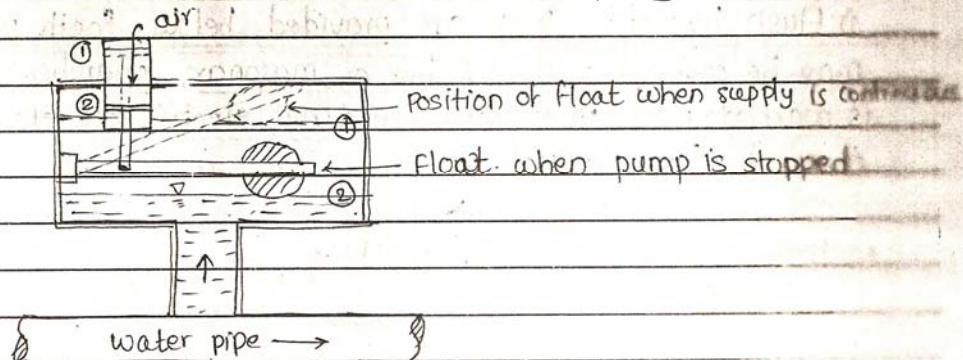 air
①
②
Position of Float when supply is continuous
①
Float when pump is stopped
②
water pipe →